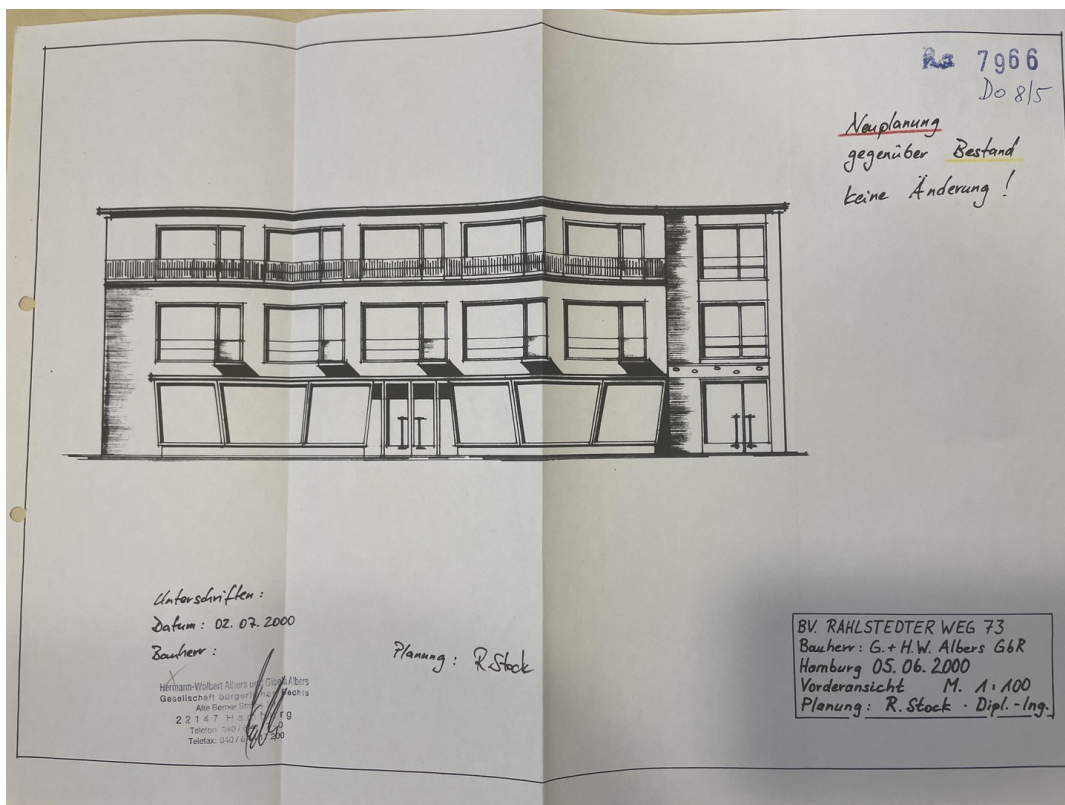 Ra 7966
Do 8/5
Neuplanung
gegenüber Bestand
keine Änderung !
Unterschriften :
Datum : 02. 07. 2000
Bauherr :
Hermann-Wolbert Albers und Gisela Albers
Gesellschaft bürgerlichen Rechts
Alte Berner
22147 Hamburg
Telefon: 040 /
Telefax: 040 / 200
Planung : R. Stock
BV. RAHLSTEDTER WEG 73
Bauherr : G. + H.W. Albers GbR
Hamburg 05. 06. 2000
Vorderansicht M. 1 : 100
Planung : R. Stock · Dipl.-Ing.